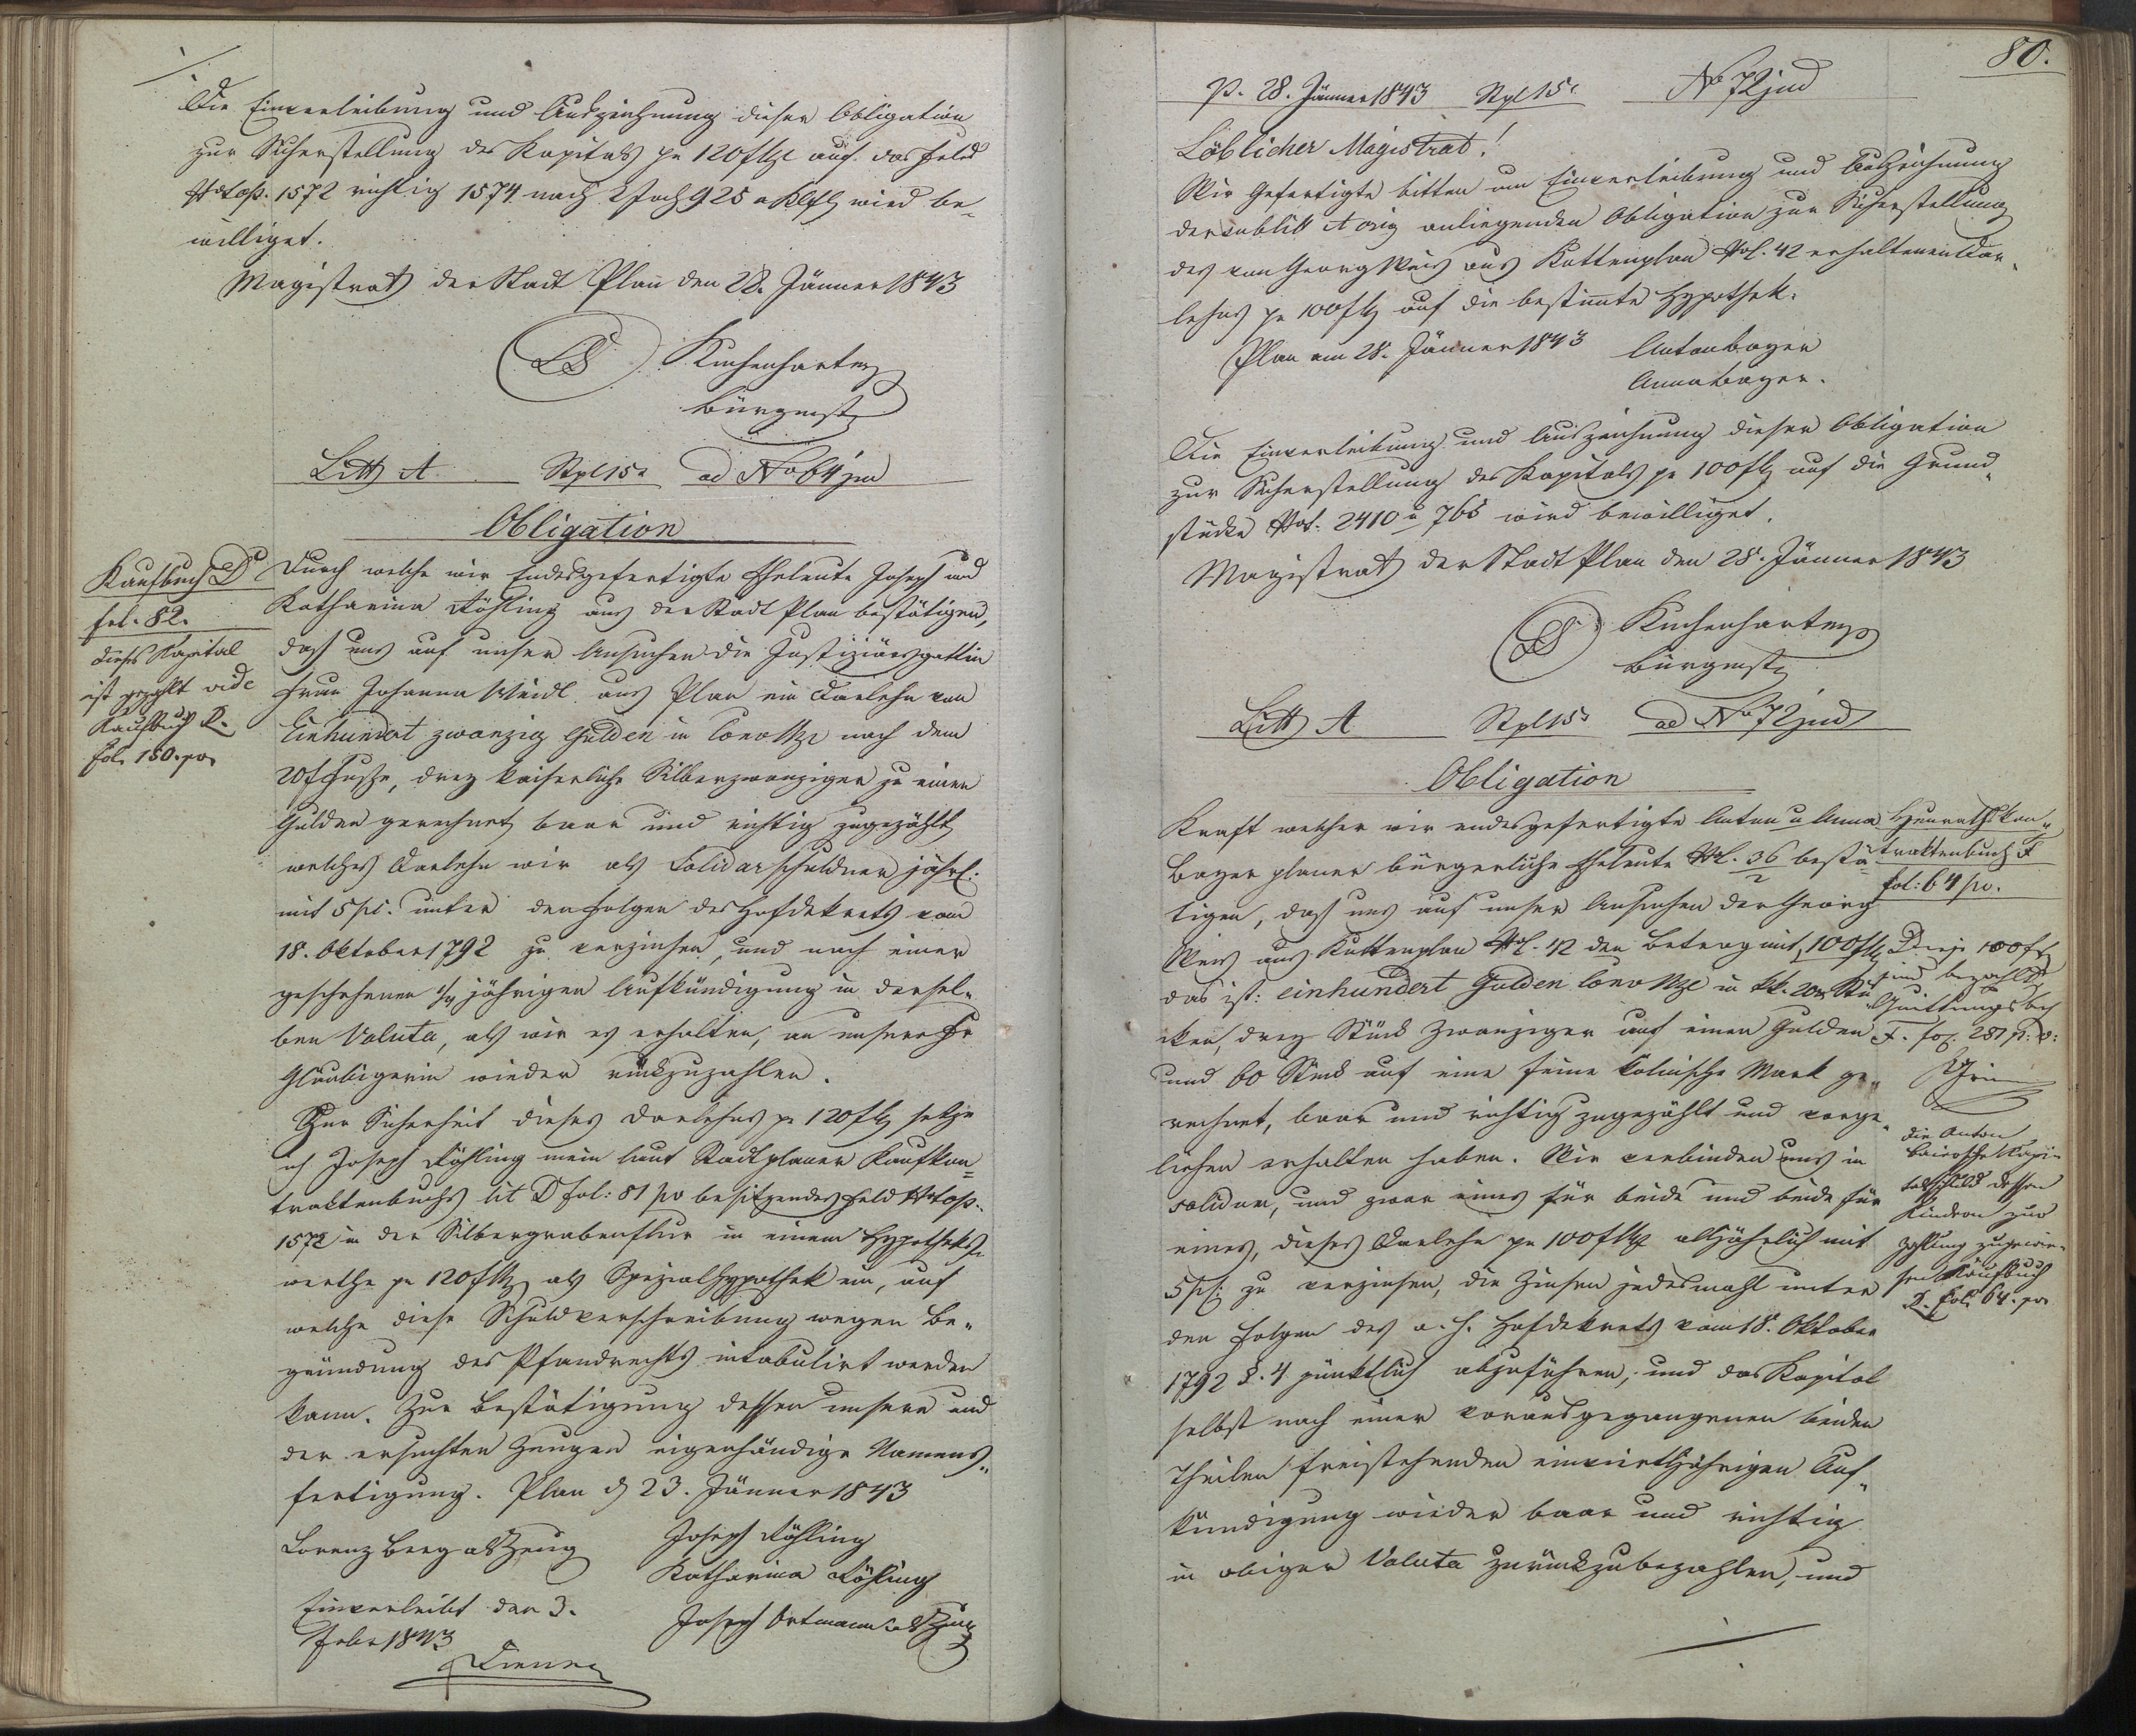 Die Einverleibung und Auszeichnung dieser Obligation
zur Sicherstellung des Kapitals pr 120 f auf das Feld
1572 richtig 1574 nach 2 Joch 925 Klft wird be„
williget.
Magistrat der Stadt Plan den 28. Jänner 1843
LS Kuchenhartz
Bürgmst
Litt A Stpl 15 ad No 64 jud
Obligation
Kaufbuch D
fol. 82.
Dieses Kapital
ist gezahlt vide
Kaufbuch
fol. 150. pos
Durch welche wir Endesgefertigte Eheleute Joseph und
Katharina Köhling aus der Stadt Plan bestätigen,
daß uns auf unser Ansuchen die Justiziärsgattin
Frau Johanna Weidl aus Plan ein Darlehn von
Einhundert zwanzig Gulden in Conv Mze nach dem
20 f Fuße, drey kaiserliche Silberzwanziger zu einen
Gulden gerechnet baar und richtig zugezählt
welches Darlehn wir als Solidarschuldner jährl:
mit 5 pc. unter den Folgen des Hofdekrets vom
18. Oktober 1792 zu verzinsen, und nach einer
geschehenen 1/4 jährigen Aufkündigung in dersel„
ben Valuta, als wir es erhalten, an unsere Fr
Gläubigerin wieder rückzuzahlen.
Zur Sicherheit dieses Darlehns pr 120 f setze
ich Joseph Köhling mein laut Stadtplaner Kaufkon„
traktenbuchs lit D fol: 81 po besitzendes Feld
1572 in der Silbergrabenflur in einem Hypotheks„
werthe pr 120 f als Spezialhypothek ein, auf
welche diese Schuldverschreibung wegen Be„
gründung des Pfandrechts intabulirt werden
kann. Zur Bestätigung dessen unsere und
der ersuchten Zeugen eigenhändige Namens„
fertigung. Plan d 23. Jänner 1843
Lorenz Berg als Zeug Joseph Köhling
Katharina Köhling
Einverleibt den 3. Joseph Ortmann als Zeug
Febr 1843
80.
P. 28. Jänner 1843 Stpl 15 No 72 jud
Löblicher Magistrat!
Wir Gefertigte bitten um Einverleibung und Auszeichnung
der sub litt A orig anliegenden Obligation zur Sicherstellung
des von Georg Weis aus Kuttenplan No. 42 erhaltenen Dar„
lehns pr 100 f auf die bestimmte Hypothek.
Plan am 28. Jänner 1843 Anton Bayer
Anna Bayer.
Die Einverleibung und Auszeichnung dieser Obligation
zur Sicherstellung des Kapitals pr 100 f auf die Grund„
stücke 2410 u 765 wird bewilliget.
Magistrat der Stadt Plan den 28. Jänner 1843
LS Kuchenhartz
Bürgmst
Litt A Stpl 15 ad No 72 jud
Obligation
Kraft welcher wir endesgefertigte Anton u Anna
Bayer planer bürgerliche Eheleute No. 36/2 bestä„
tigen, daß uns auf unser Ansuchen der Georg
Weis aus Kuttenplan No. 42 den Betrag mit 100 f
das ist: einhundert Gulden Conv Mze in kk. 20er Stü
cken, drey Stück Zwanziger auf einen Gulden
und 60 Stück auf eine feine kölnische Mark ge„
rechnet, baar und richtig zugezählt und vorge„
liehen erhalten haben. Wir verbinden uns in
solidum, und zwar eines für beide und beide für
eines, dieses Darlehn pr 100 f alljährlich mit
5 pc: zu verzinsen, die Zinsen jedesmahl unter
den Folgen des a. h. Hofdekrets vom 18. Oktober
1792 §. 4 pünktlich abzuführen, und das Kapital
selbst nach einer vorausgegangenen beiden
Theilen freistehenden einviertljährigen Auf„
kündigung wieder baar und richtig
in obiger Valuta zurückzubezahlen, und
Heurathskon„
traktenbuch F
fol: 64 po.
Diese 100 f
sind bezahlt
Quittungsbch
F. fol: 281 p: v:
Die Anton
Baierische Kapi„
talschuld dessen
Kindern zur
Zahlung zugewie„
sen Kaufbuch
fol. 64. pos